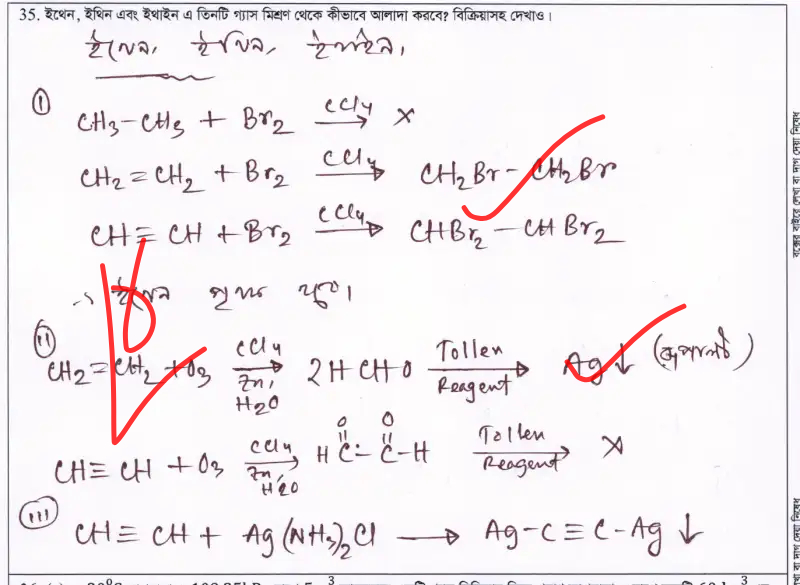 35. ইথেন, ইথিন এবং ইথাইন এ তিনটি গ্যাস মিশ্রণ থেকে কীভাবে আলাদা করবে? বিক্রিয়াসহ দেখাও।
ইথেন, ইথিন, ইথাইন।
(i) CH3-CH3 + Br2 CCl4→ ×
CH2=CH2 + Br2 CCl4→ CH2Br-CH2Br
CH≡CH + Br2 CCl4→ CHBr2-CHBr2
ইথেন পৃথক
(ii) CH2=CH2 + O3 CCl4→ Zn, H2O 2HCHO Tollen→ Reagent Ag↓
CH≡CH + O3 CCl4→ Zn, H2O H-C(=O)-C(=O)-H Tollen→ Reagent ×
(iii) CH≡CH + Ag(NH3)2Cl → Ag-C≡C-Ag↓